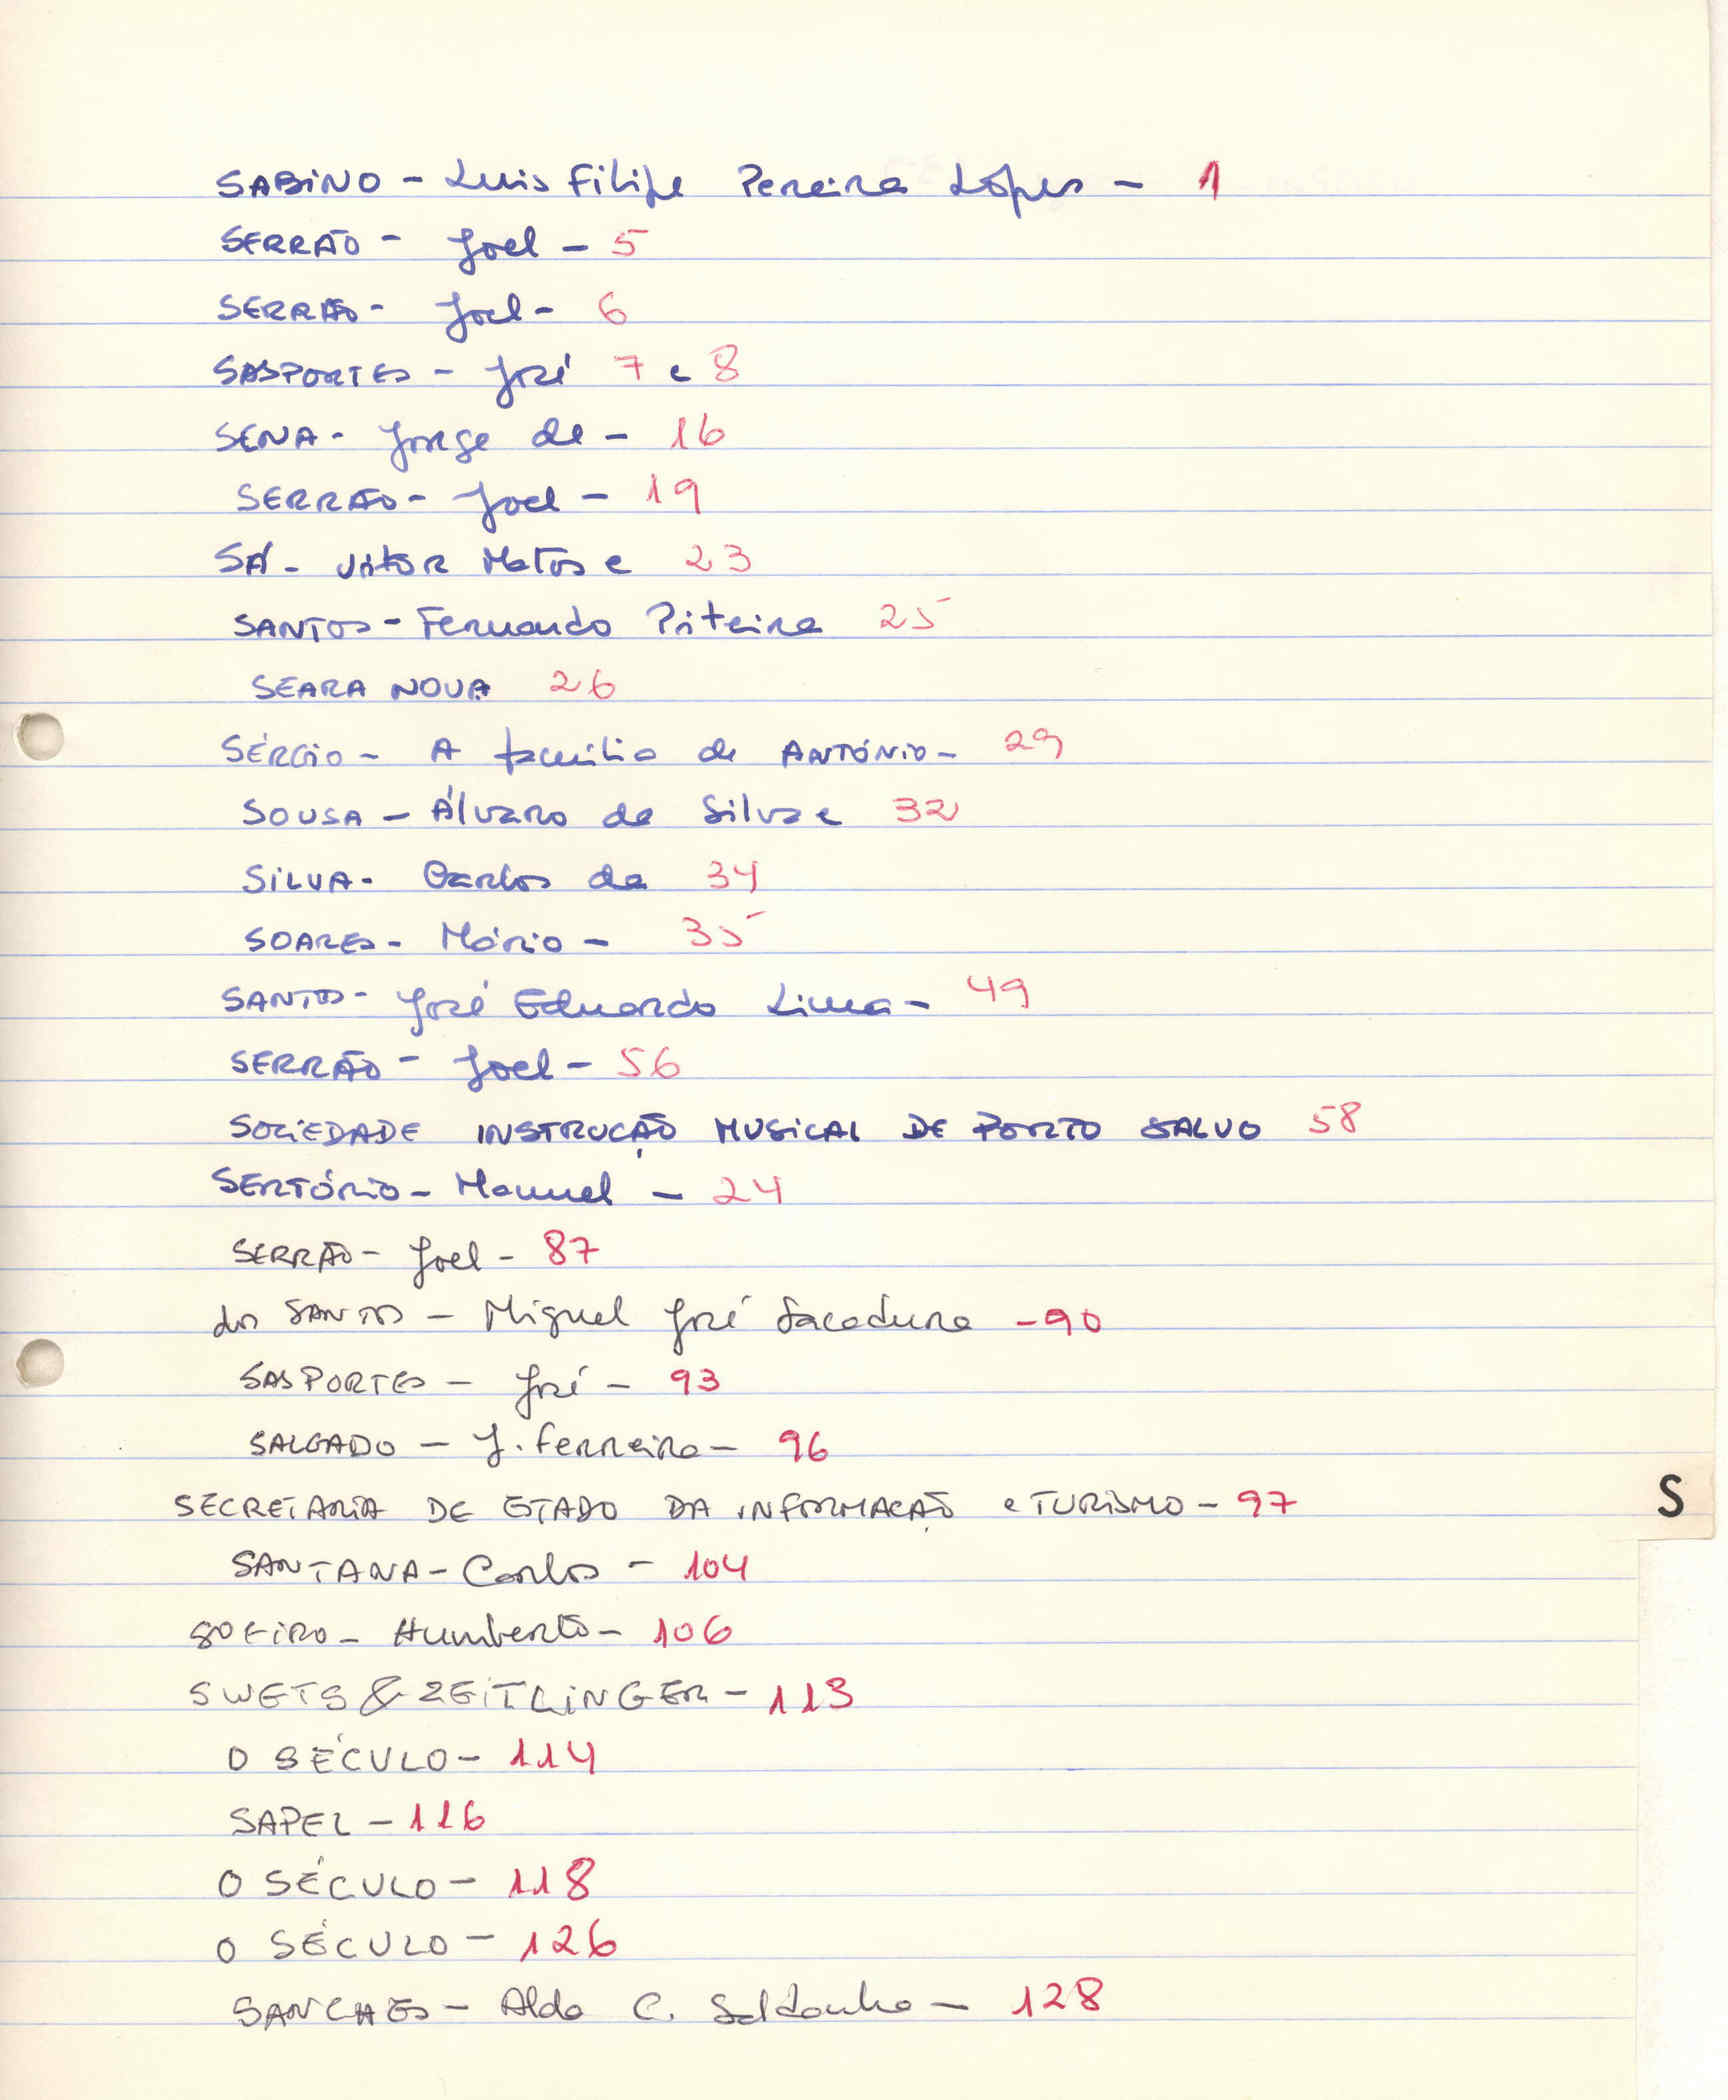 SABINO - Luis Filipe Pereira Lopes - 1
SERRÃO - Joel - 5
SERRÃO - Joel - 6
SASPORTES - José 7 e 8
SENA - Jorge de - 16
SERRÃO - Joel - 19
SÁ - Vitor Matos e 23
SANTOS - Fernando Piteira 25
SEARA NOVA 26
SÉRGIO - A família de ANTÓNIO - 29
SOUSA - Álvaro da Silva e 32
SILVA - Carlos da 34
SOARES - Mário - 35
SANTOS - José Eduardo Lima - 49
SERRÃO - Joel - 56
SOCIEDADE INSTRUÇÃO MUSICAL DE PORTO SALVO 58
SERTÓRIO - Manuel - 24
SERRÃO - Joel - 87
dos SANTOS - Miguel José Sacadura - 90
SASPORTES - José - 93
SALGADO - J. Ferreira - 96
SECRETARIA DE ESTADO DA INFORMAÇÃO e TURISMO - 97
S
SANTANA - Carlos - 104
SOEIRO - Humberto - 106
SWETS & ZEITLINGER - 113
O SÉCULO - 114
SAPEL - 116
O SÉCULO - 118
O SÉCULO - 126
SANCHES - Alda C. Saldanha - 128